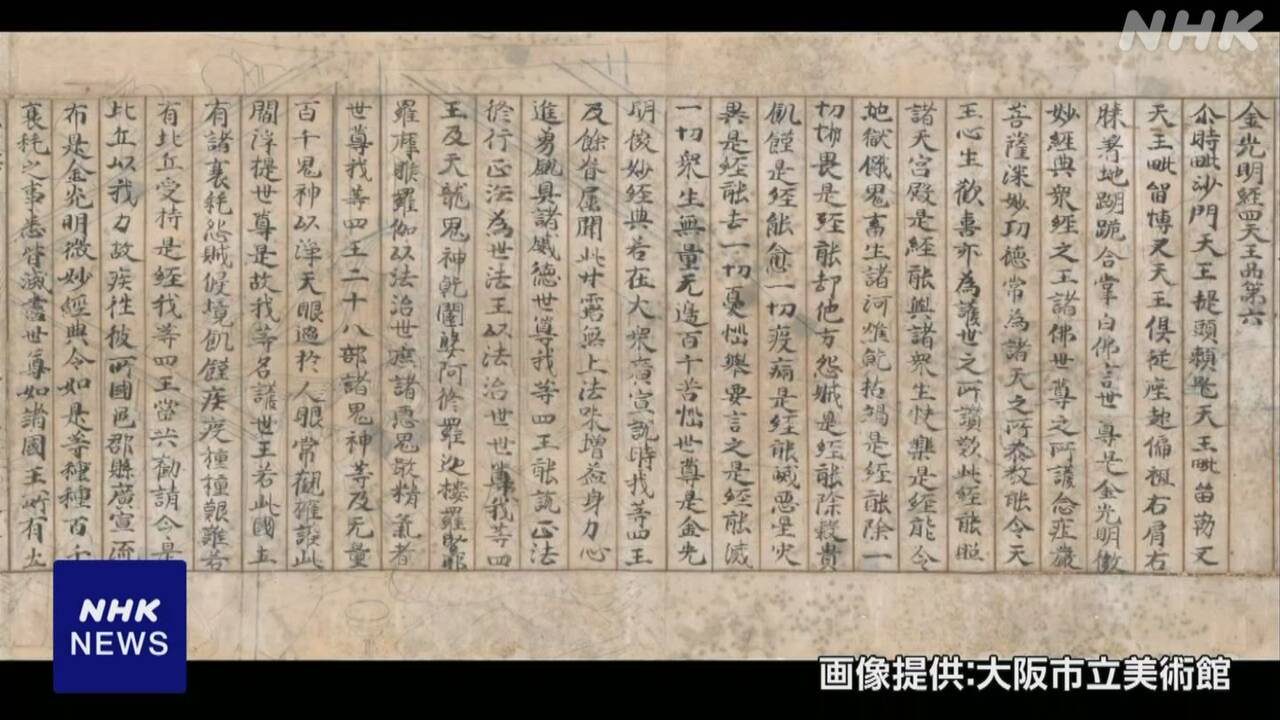 NHK
金光明經四天王品第六
尒時毗沙門天王提頭頼吒天王毗留勒叉
天王毗留博叉天王俱從座起偏袒右肩右
膝著地胡跪合掌白佛言世尊是金光明微
妙經典衆經之王諸佛世尊之所護念莊嚴
菩薩深妙功德常為諸天之所恭敬能令天
王心生歡喜亦為護世之所讚歎此經能照
諸天宮殿是經能與諸衆生快樂是經能令
地獄餓鬼畜生諸河燋乾枯竭是經能除一
切怖畏是經能却他方怨賊是經能除穀貴
飢饉是經能愈一切疫病是經能滅惡星
異是經能去一切憂惱舉要言之是經能滅
一切衆生無量无邊百千苦惱世尊是金光
明微妙經典若在大衆廣宣說時我等四王
及餘眷屬聞此甘露無上法味增益身力心
進勇銳具諸威德世尊我等四王能說正法
修行正法為世法王以法治世世尊我等四
王及天龍鬼神乾闥婆阿修羅迦樓羅緊那
羅摩睺羅伽以法治世遮諸惡鬼噉精氣者
世尊我等四王二十八部諸鬼神等及无量
百千鬼神以淨天眼過於人眼常觀擁護此
閻浮提世尊是故我等名護世王若此國土
有諸衰耗怨賊侵境飢饉疾疫種種艱難若
有比丘受持是經我等四王當共勸請令是
比丘以我力故疾往彼所國邑郡縣廣宣流
布是金光明微妙經典令如是等種種百千
衰耗之事悉皆滅盡世尊如諸國王所有土
NHK
NEWS
画像提供:大阪市立美術館